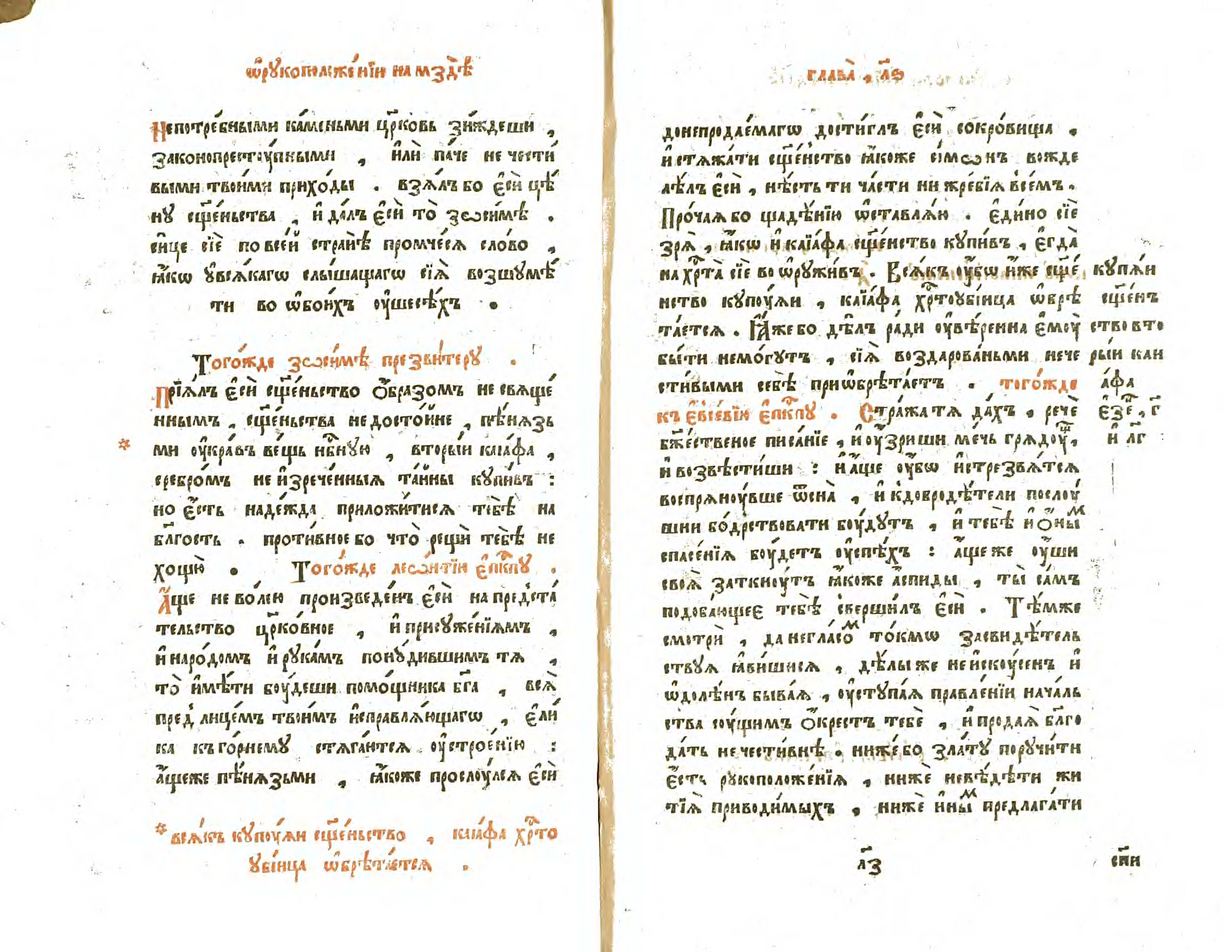 ѡ҆рꙋкоположе́нїи на мздѣ̀
Непотре́бными ка́меньми цр҃ковь зи́ждеши ,
законопрестꙋ́пными , и҆лѝ па́че не чести́
выми твои́ми прихо́ды . взѧ́лъ бо є҆сѝ цѣ́
нꙋ сщ҃е́ньства , и҆ да́лъ є҆сѝ то̀ зѡси́мѣ .
си́це сїѐ по все́й странѣ̀ промче́сѧ сло́во ,
ꙗ҆́кѡ ᲂу҆всѧ́кагѡ слы́шащагѡ сїѧ̀ возшꙋмѣ́
ти во ѡ҆бои́хъ ᲂу҆шесѣ́хъ .
Тогѡ́жде зѡси́мѣ презви́терꙋ .
Прїѧ́лъ є҆сѝ сщ҃е́ньство ѻ҆́бразомъ не свѧще́
ннымъ , сщ҃е́ньства недосто́йне , пѣ́нѧзь
ми ᲂу҆кра́въ ве́щь нб҃нꙋю , вторы́й каїа́фа ,
сребро́мъ не и҆зрече́нныѧ та́йны кꙋпи́въ :
но є҆́сть наде́жда приложи́тисѧ тебѣ̀ на
бл҃гость . проти́вное бо что̀ рещѝ тебѣ̀ не
хощꙋ̀ . Тогѡ́жде леѡ́нтїи є҆пⷭ҇кпꙋ .
А҆́ще не во́лею произведе́нъ є҆сѝ на предста́
тельство цр҃ко́вное , и҆ присꙋже́нїѧмъ ,
и҆ наро́домъ и҆ рꙋка́мъ понꙋ́дившимъ тѧ ,
то̀ и҆мѣ́ти бꙋ́деши помо́щника бг҃а , всѧ̀
пред̾ лице́мъ твои́мъ и҆справлѧ́ющагѡ , є҆ли́
ка къ го́рнемꙋ стѧга́ютсѧ ᲂу҆строе́нїю :
а҆́щеже пѣ́нѧзьми , ꙗ҆́коже прослꙋ́лсѧ є҆сѝ
* всѧ́къ кꙋпꙋ́ѧи сщ҃е́ньство , каїа́фа хрⷭ҇то
ᲂу҆бі́йца ѡ҆брѣта́етсѧ .
глава̀ , л҃ѳ
до непродае́магѡ дости́глъ є҆сѝ сокро́вища .
и҆ стѧжа́ти сщ҃е́нство ꙗ҆́коже сі́мѡнъ вожде
лѣ́лъ є҆сѝ , нѣ́сть ти ча́сти ни жре́бїѧ в̾се́мъ .
Про́чаѧ бо щадѣ́нїи ѡ҆ставлѧ́ю . Є҆ди́но сїѐ
зрѧ̀ , ꙗ҆́кѡ и҆ каїа́фа сщ҃е́нство кꙋпи́въ , є҆гда̀
на хрⷭ҇та̀ сїѐ во ѡ҆рꙋжи́въ . Всѧ́къ ᲂу҆́бѡ и҆́же сщ҃е́
нство кꙋпꙋ́ѧи , каїа́фа хрⷭ҇тоᲂубі́йца ѡ҆брѣ
та́етсѧ . Ꙗ҆́же бо дѣ́лъ ра́ди ᲂу҆вѣ́ренна є҆мꙋ̀
бы́ти немо́гꙋтъ , сїѧ̀ воздарова́ньми нече
сти́выми себѣ̀ приѡ҆брѣта́етъ . тогѡ́жде
къ є҆все́вїю є҆пⷭ҇кпꙋ . Стра́жа тѧ да́хъ , речѐ
бж҃е́ственое писа́нїе , и҆ ᲂу҆́зриши ме́чь грѧдꙋ́щ ,
и҆ возвѣсти́ши : и҆ а҆́ще ᲂу҆́бѡ и҆стрезвѧ́тсѧ
воспрѧнꙋ́вше ѿсна̀ , и҆ к̾добродѣ́тели послꙋ́
шни бо́дрствовати бꙋ́дꙋтъ , и҆ тебѣ̀ и҆ ѻ҆нѣ́м
спасе́нїѧ бꙋ́детъ ᲂу҆спѣ́хъ : а҆́ще же ᲂу҆́ши
своѧ̀ заткнꙋ́тъ ꙗ҆́коже а҆́спиды , ты̀ са́мъ
подоба́ющее тебѣ̀ сверши́лъ є҆сѝ . Тѣ́мже
смотрѝ , да не гла́сом то́кмѡ засвидѣ́тель
ствꙋѧ ꙗ҆ви́шисѧ , дѣ́лы же неи҆скꙋ́сенъ и҆
ѡ҆долѣ́нъ быва́ѧ , ᲂу҆стꙋпа́ѧ правле́нїи нача́ль
ства сꙋ́щимъ ѻ҆́крестъ тебє̀ , и҆ продаѧ̀ бл҃го
да́ть нечести́внѣ . ниже́ бо зла́тꙋ порꙋчи́ти
є҆́сть рꙋкоположе́нїѧ , нижѐ невѣ́дѣти жи
тїѧ̀ приводи́мыхъ , нижѐ и҆ны́м предлага́ти
кꙋпꙋ́ѧи
сщ҃е́нъ
ство вто
ры́й каи
а́фа
є҆зе́ , г҃
и҆ л҃г
л҃з
спⷭ҇и